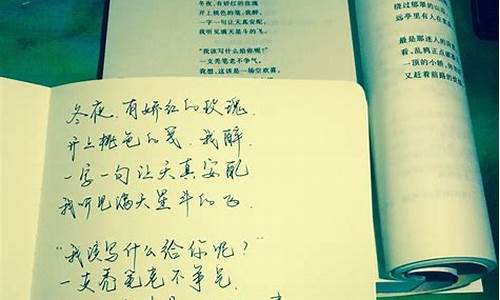 冬夜,有娇红的玫瑰
开上桃色的笺,我醉,
一字一句让天真安配,
我听见满天星斗的飞。
"我该写什么给你呢?"
一支秃笔老不争气,
我想,这该是一场空欢喜。
绕过郁翠的山
远亭里有人在
最是那迷人的
看,乱鸦正点破
一顶的小轿,
又赶着前路的
冬夜,有娇红的玫瑰,
开上桃色的笺,我醉,
一字一句让天真安配
我听见满天星斗的飞,
"我该写什么给你呢?"
一支秃笔老不争气,